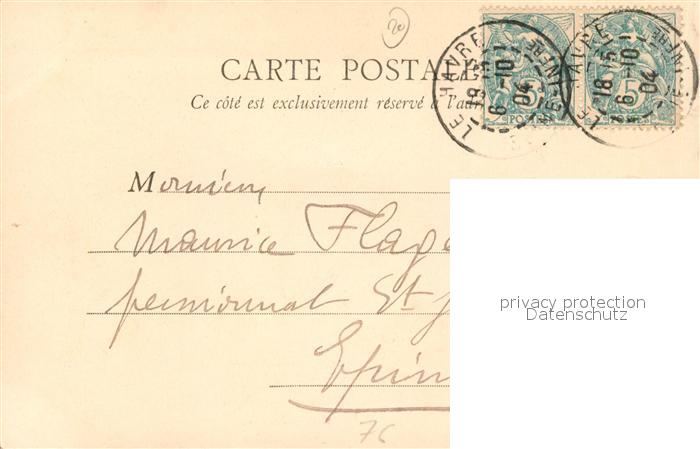 20
CARTE POSTALE
Ce côté est exclusivement réservé à l'adr
LE HAVRE
18 15
6 -10
04
5 POSTES
LE HAVRE
18 15
6 -10
04
5
Monsieur
Maurice Flage
pensionnat St J
Epin
76
privacy protection
Datenschutz